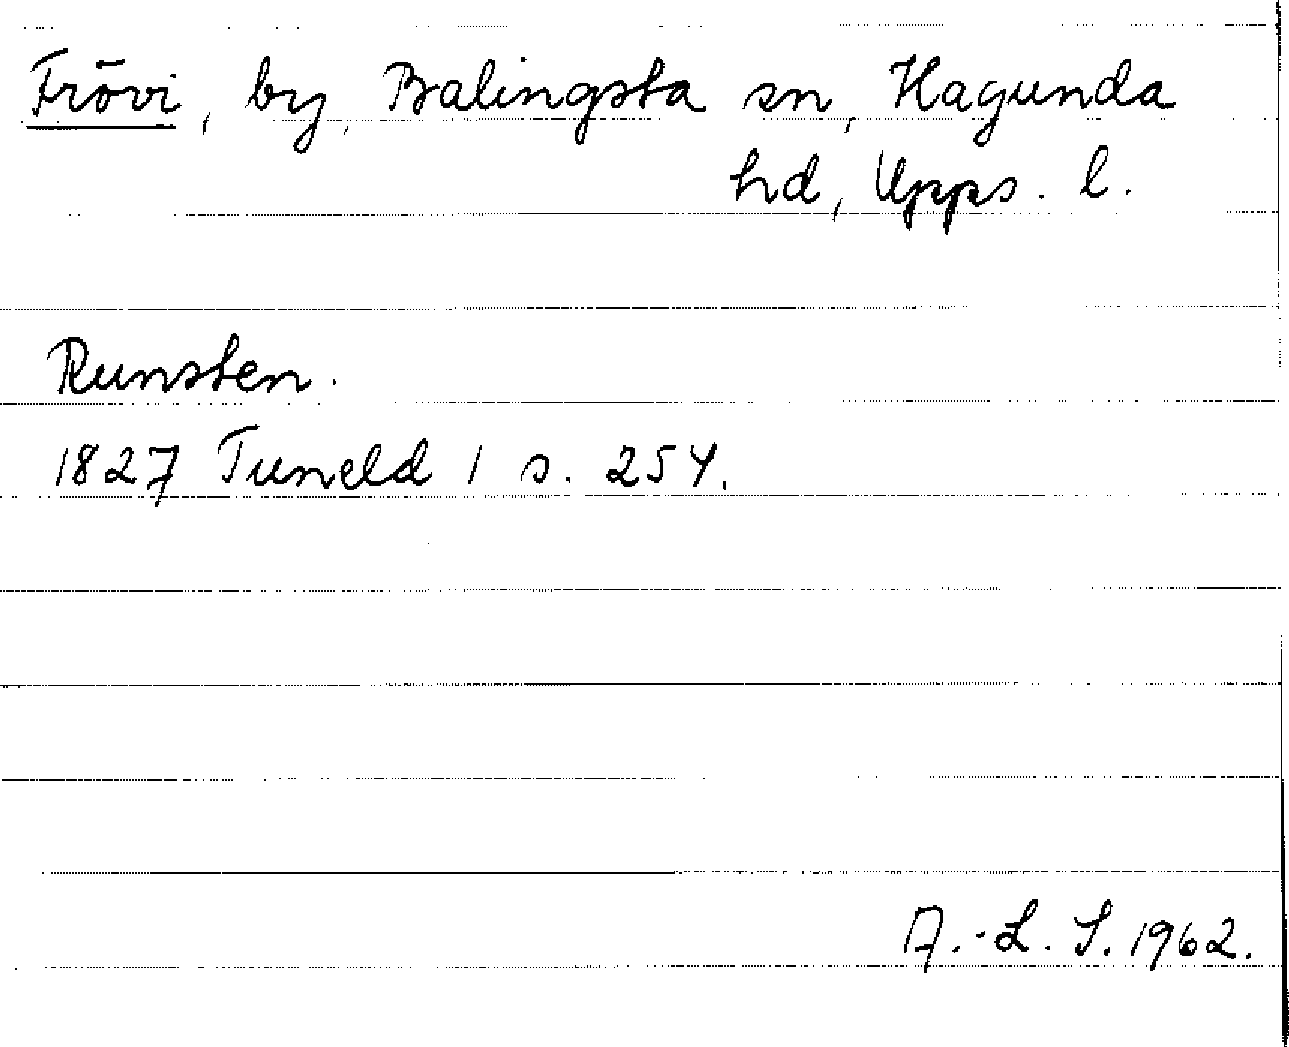 Frövi, by, Balingsta sn, Hagunda
hd, Upps. l.
Runsten.
1827 Tuneld 1 s. 254.
A.-L. S. 1962.